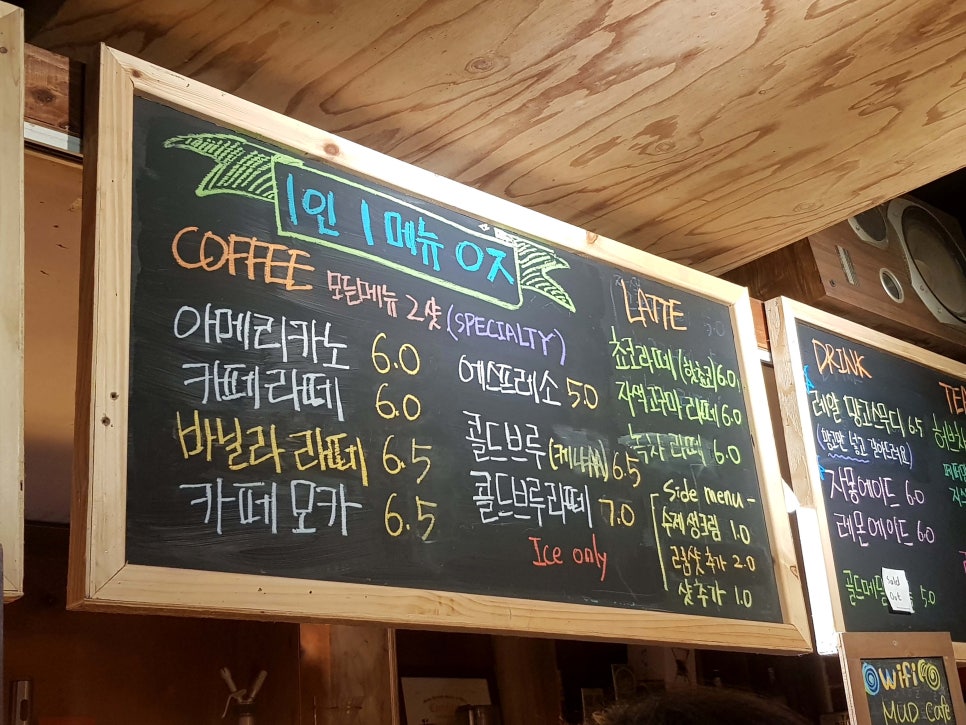 1인 1메뉴 o ス
COFFEE 모든메뉴 2샷 (SPECIALTY)
아메리카노 6.0
카페 라떼 6.0
바닐라 라떼 6.5
카페 모카 6.5
에스프레소 5.0
콜드브루 (케냐AA) 6.5
콜드브루라떼 7.0
Ice only
LATTE
쵸코라떼 (핫쵸코) 6.0
자색고구마 라떼 6.0
녹차 라떼 6.0
Side menu -
수제 생크림 1.0
럼샷 추가 2.0
샷 추가 1.0
DRINK
레알 망고스무디 6.5
(망고만 넣고 갈아드려요)
자몽에이드 6.0
레몬에이드 6.0
골드메달 5.0
Sold
Out
TEA
허브
wifi
MUD Cafe